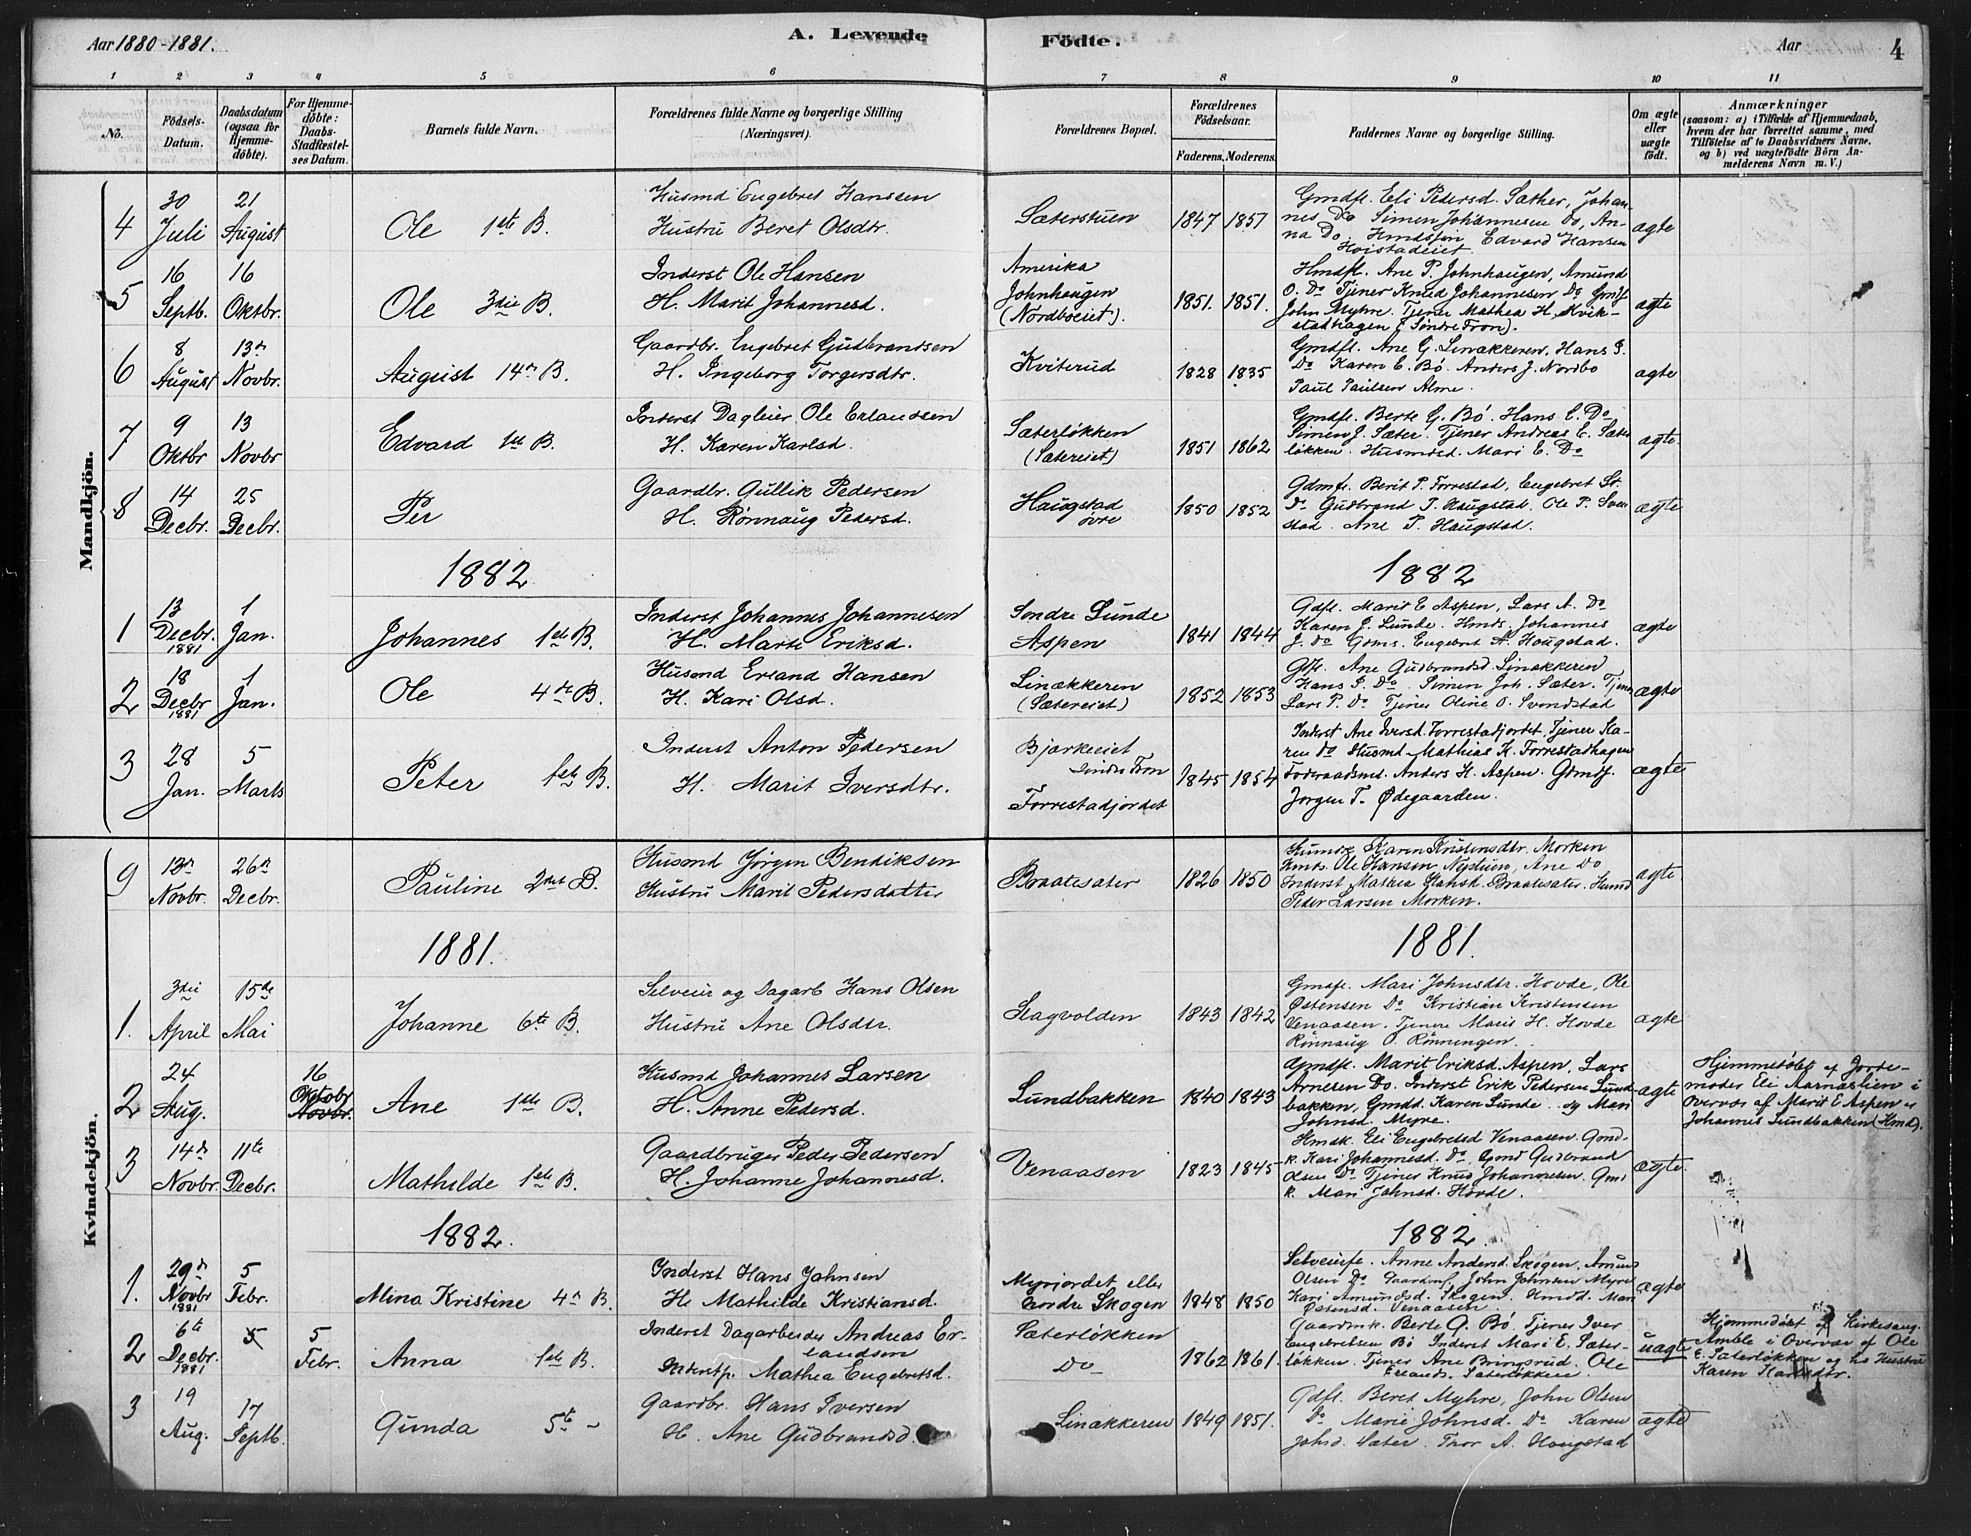 Aar 1880-1881.
A. Levende
Födte.
Aar
4
1 2 3 4 5 6 7 8 9 10 11
No.
Födsels-Datum.
Daabsdatum (ogsaa for Hjemme-döbte).
For Hjemme-döbte: Daabs-Stadfæstel-ses Datum.
Barnets fulde Navn.
Forældrenes fulde Navne og borgerlige Stilling (Næringsvei).
Forældrenes Bopæl.
Forældrenes Födselsaar.
Faderens. Moderens.
Faddernes Navne og borgerlige Stilling.
Om ægte eller uægte födt.
Anmærkninger
(saasom: a) i Tilfælde af Hjemmedaab,
hvem der har forrettet samme, med
Tilföielse af to Daabsvidners Navne,
og b) ved uægtefödte Börn An-
melderens Navn m. V.)
Mandkjön.
4
30 Juli
21 August
Ole 1ste B.
Husmd Engebret Hanssen
Hustru Beret Olsdtr.
Sæterstuen
1847
1857
Gmdfl. Eli Pedersd. Sæther, Johan-
nes Do Simen Johannesen Do, An-
na Do. Edvard Hansen
ægte
5
16 Septb.
16 Oktbr.
Ole 3die B.
Inderst Ole Hansen
H. Marit Johannesd.
Amerika
Johnhaugen
(Nordbøeiet).
1851.
1851.
Hmdfl. Ane P. Johnhaugen, Amund
O. Do Tjener Knud Johannesen Do Gmf
John Myhre. Tjener Mathea H. Kvik-
stadhagen (Søndre Fron).
ægte
6
8 August
13de Novbr.
August 14de B.
Gaardbr. Engebret Gudbrandsen
H. Ingeborg Torgersdtr.
Kviterud
1828
1835
Gmdfl. Ane G. Linakkeren, Hans G.
Do Karen E. Bø. Anders J. Nordbø
Paul Paulsen Alme.
ægte
7
9 Oktbr
13 Novbr
Edvard 1ste B.
Inderst Dagleier Ole Erlandsen
H. Karen Karlsd.
Sæterløkken
(Sætereiet)
1851
1862
Gmdfl. Berte G. Bø. Hans E. Do
Simen J. Sæter. Tjener Andreas E. Sæter
løkken. Husmdsd. Mari E. Do
ægte.
8
14 Decbr.
25 Decbr.
Per
Gaardbr. Gullik Pedersen
H. Rønnaug Pedersd.
Haugstad
øvre
1850
1852
Gdmfl. Berit P. Forrestad, Engebret St.
Do Gudbrand P. Haugstad. Ole P. Sven
stad. Ane P. Haugstad.
ægte
1882
1882
1
13 Decbr. 1881
1 Jan.
Johannes 1ste B.
Inderst Johannes Johannesen
H. Marte Eriksd.
Søndre Lunde
Aspen
1841
1844
Gdfl. Marit E Aspen, Lars A. Do
Karen J. Lunde. Hmds. Johannes
J. Do Gdms. Engebret A. Hougstad.
ægte
2
18 Decbr 1881
1 Jan.
Ole 4de B.
Husmd Erland Hansen
H. Kari Olsd.
Linækkeren
(Sætereiet)
1852
1853
Gfl. Ane Gudbrandsd. Linækkeren
Hans G. Do. Simen Joh. Sæter. Tjener
Lars P. Do Tjener Oline O. Svendstad
ægte
3
28 Jan.
5 Marts
Peter 1ste B.
Inderst Anton Pedersen
H. Marit Iversdtr.
Bjørkeeiet
Søndre Fron
Forrestadjordet
1845
1854
Inderst Ane Iversd. Forrestadjordet. Tjener Ka-
ren Do Husmd Mathias K. Forrestadhagen
Føderaadsmd. Anders H. Aspen. Gdmdf.
Jørgen T. Ødegaarden.
ægte
Kvindekjön.
9
13de Novbr.
26de Decbr.
Pauline 2det B.
Husmd Jörgen Bendiksen
Hustru Marit Pedersdatter
Braatesæter
1826
1850
Karen Kristensdtr. Morken
Hmds. Ole Hansen Nystuen, Ane Do
Inderst Mathea Hansd. Braatesæter. Husmd
Peder Larsen Morken.
ægte
1881.
1881.
1.
3die April
15de Mai
Johanne 6te B.
Selveier og Dagarb Hans Olsen
Hustru Ane Olsdtr.
Slagvolden
1843
1842
Gmdfl. Mari Johnsdtr. Hovde, Ole
Østensen Do Kristian Kristensen
Venaasen. Tjener Marie H. Hovde
Rønnaug O. Rønningen.
ægte
2
24 Aug.
16 Oktobr
Novbr.
Ane 1ste B.
Husmd Johannes Larsen
H. Anne Pedersd.
Lundbakken
1840
1843
Gmdfl. Marit Eriksd. Aspen, Lars
Arnesen Do. Inderst Erik Pedersen Lund
bakken, Gmdd. Karen Lunde. og Mari
Johnsd. Myre.
ægte
Hjemmedøbt af Jorde-
moder Eli Aarnæslien i
Overvær af Marit E Aspen og
Johannes Lundbakken (Hmd).
3
14de Novbr.
11te Decbr.
Mathilde 1ste B.
Gaardbruger Peder Pedersen
H. Johanne Johannesd.
Venaasen
1823
1845
Hmdk. Eli Engebretsd Venaasen. Gmd-
k. Kari Johannesd. Do, Gmd Gudbrand
Olsen Do Tjener Knud Johannesen. Gmd
k. Mari Johnsd. Hovde.
ægte.
1882.
1882.
1.
29de Novbr 1881
5 Febr.
Mina Kristine 4de B.
Inderst Hans Johnsen
H. Mathilde Kristiansd.
Myrjordet eller
søndre Skogen
1848
1850
Selveierfl. Anne Andersd. Skogen, Amund
Olsen Do. John Johnsen Myre
Kari Amundsd. Skogen. Hmdd. Mari
Østensd. Venaasen.
ægte
2
6te Decbr. 1881
5
5 Febr.
Anna 1ste B.
Inderst Dagarbeider Andreas Er-
landsen
Inderstp. Mathea Engebretsd.
Sæterløkken
Do
1862
1861.
Gaardmk. Berte G. Bø. Tjener Iver
Engebretsen Bø Inderst Mari E. Sæter-
løkken. Tjener Ane Bringsrud. Ole
Erlands. Sæterløkken.
uægte
Hjemmedøbt af Kirkesang.
Amble i Overvær af Ole
E. Sæterløkken og hs Hustru
Karen Karlsdtr.
3
19 Aug.
17 Septb.
Gunda 5te -
Gaardbr. Hans Iversen
H. Ane Gudbrandsd.
Linækkeren
1849
1851.
Gdfl. Beret Myhre, John Olsen
Do Marie Johnsd. Do Karen
Johsd. Sæter. Thor A. Hougstad
ægte